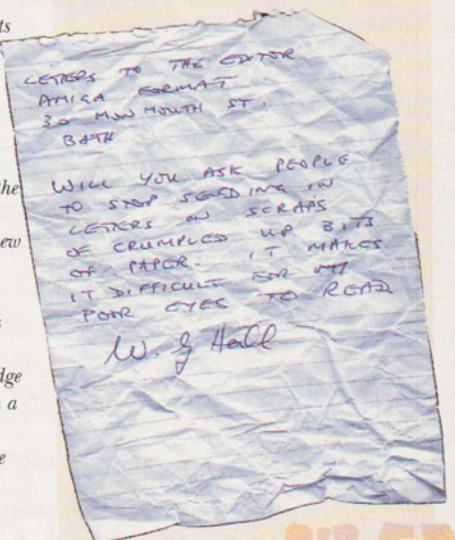 ts
the
ew
s
dge
a
e
LETTERS TO THE EDITOR
AMIGA FORMAT
30 MONMOUTH ST.
BATH
WILL YOU ASK PEOPLE
TO STOP SENDING IN
LETTERS ON SCRAPS
OF CRUMPLED UP BITS
OF PAPER. IT MAKES
IT DIFFICULT FOR MY
POOR EYES TO READ
W. G Hall